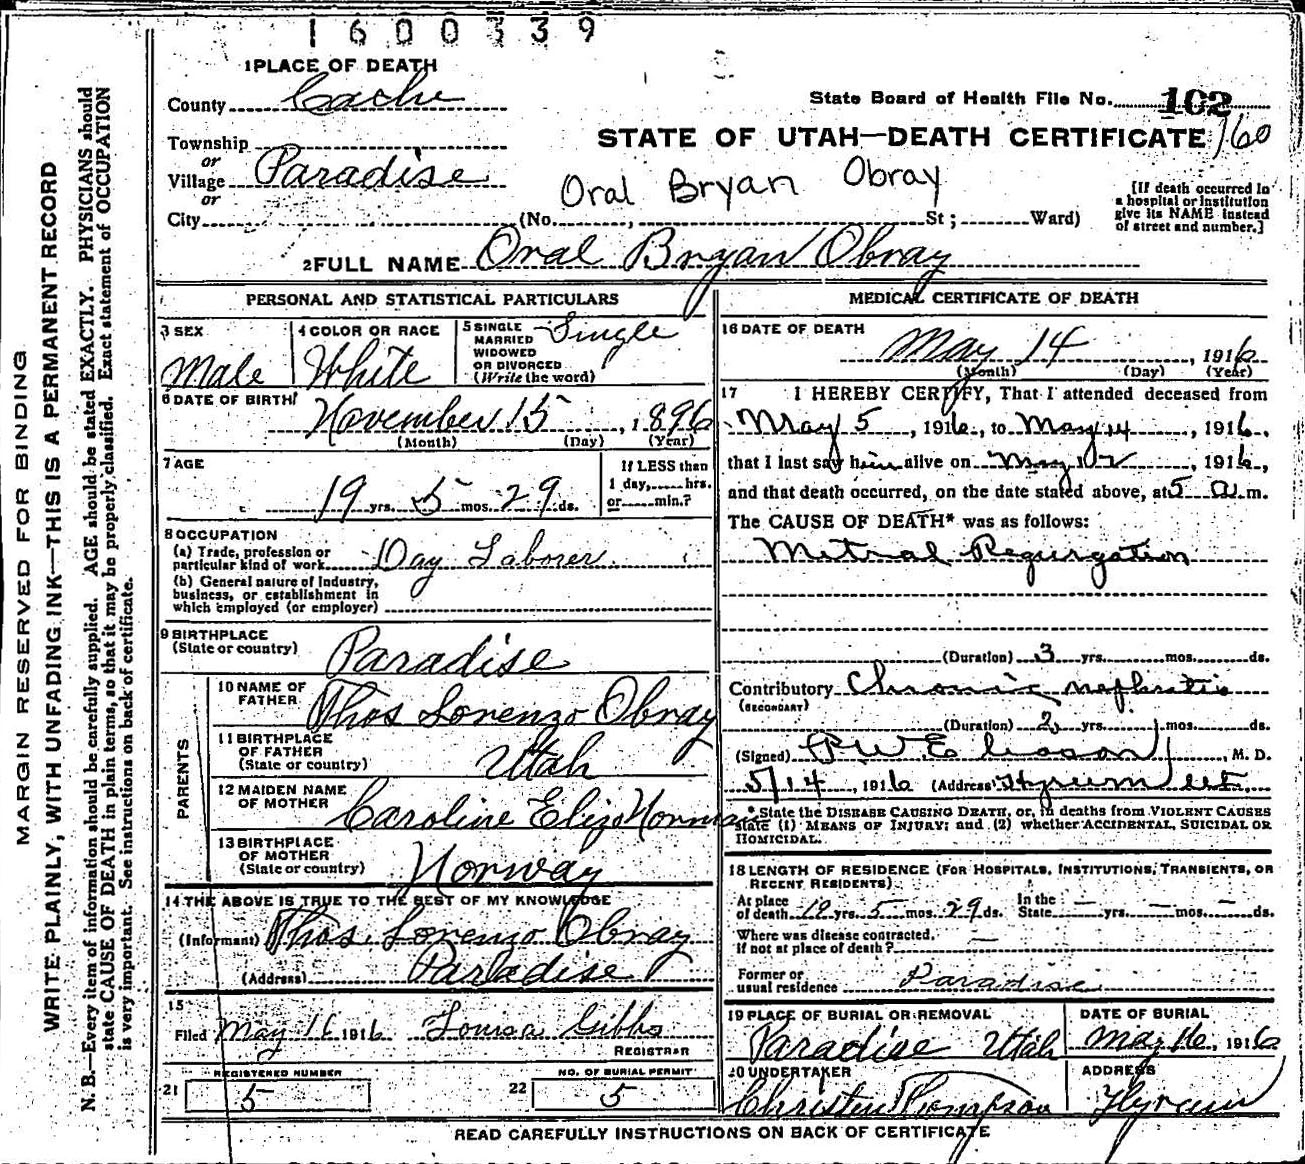 1600339
1 PLACE OF DEATH
County Cache
State Board of Health File No. 102
Township
or
Village Paradise
or
City
STATE OF UTAH—DEATH CERTIFICATE 160
Oral Bryan Obray
(No. , St ; Ward)
[If death occurred in
a hospital or institution
give its NAME instead
of street and number.]
2 FULL NAME Oral Bryan Obray
PERSONAL AND STATISTICAL PARTICULARS
3 SEX
Male
4 COLOR OR RACE
White
5 SINGLE
MARRIED
WIDOWED
OR DIVORCED
(Write the word)
Single
6 DATE OF BIRTH
November 15, 1896
(Month) (Day) (Year)
7 AGE
19 yrs. 5 mos. 29 ds.
If LESS than
1 day, hrs.
or min.?
8 OCCUPATION
(a) Trade, profession or
particular kind of work Day Laborer
(b) General nature of Industry,
business, or establishment in
which employed (or employer)
9 BIRTHPLACE
(State or country) Paradise
PARENTS
10 NAME OF
FATHER
Thos Lorenzo Obray
11 BIRTHPLACE
OF FATHER
(State or country) Utah
12 MAIDEN NAME
OF MOTHER
Caroline Eliza Norman
13 BIRTHPLACE
OF MOTHER
(State or country) Norway
14 THE ABOVE IS TRUE TO THE BEST OF MY KNOWLEDGE
(Informant) Thos. Lorenzo Obray
(Address) Paradise
15
Filed May 16 1916 Louisa Gibbs
REGISTRAR
REGISTERED NUMBER
21 5
NO. OF BURIAL PERMIT
22 5
MEDICAL CERTIFICATE OF DEATH
16 DATE OF DEATH
May 14, 1916
(Month) (Day) (Year)
17 I HEREBY CERTIFY, That I attended deceased from
May 5, 1916, to May 14, 1916,
that I last saw him alive on May 12, 1916,
and that death occurred, on the date stated above, at 5 a.m.
The CAUSE OF DEATH* was as follows:
Mitral Regurgation
(Duration) 3 yrs. mos. ds.
Contributory Chronic nephritis
(SECONDARY)
(Duration) 2 yrs. mos. ds.
(Signed) M. D.
5/14, 1916 (Address) Hyrum
*State the DISEASE CAUSING DEATH, or, in deaths from VIOLENT CAUSES
state (1) MEANS OF INJURY; and (2) whether ACCIDENTAL, SUICIDAL OR
HOMICIDAL.
18 LENGTH OF RESIDENCE (FOR HOSPITALS, INSTITUTIONS, TRANSIENTS, OR
RECENT RESIDENTS).
At place
of death 19 yrs. 5 mos. 29 ds.
In the
State — yrs. — mos. — ds.
Where was disease contracted,
If not at place of death? —
Former or
usual residence Paradise
19 PLACE OF BURIAL OR REMOVAL
Paradise Utah
DATE OF BURIAL
May 16, 1916
20 UNDERTAKER
Christen Thompson
ADDRESS
Hyrum
READ CAREFULLY INSTRUCTIONS ON BACK OF CERTIFICATE
MARGIN RESERVED FOR BINDING
WRITE PLAINLY, WITH UNFADING INK—THIS IS A PERMANENT RECORD
N. B.—Every item of information should be carefully supplied. AGE should be stated EXACTLY. PHYSICIANS should
state CAUSE OF DEATH in plain terms, so that it may be properly classified. Exact statement of OCCUPATION
is very important. See instructions on back of certificate.